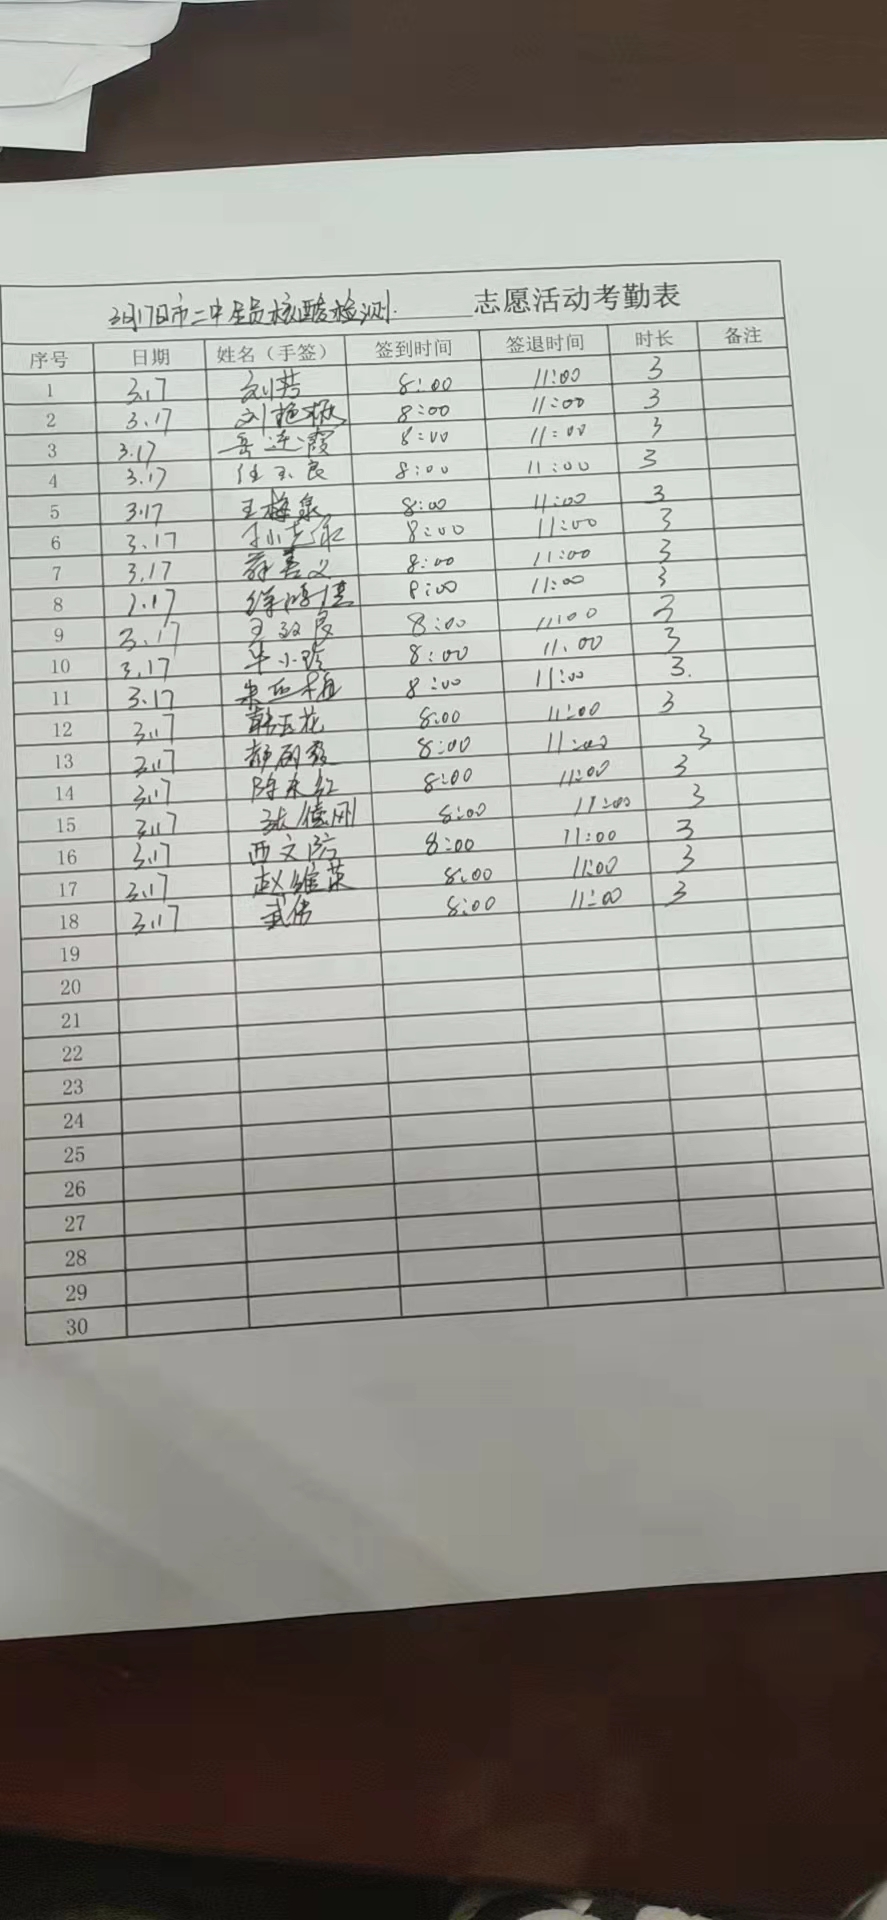 3月17日市二中全员核酸检测. 志愿活动考勤表
序号 日期 姓名（手签） 签到时间 签退时间 时长 备注
1 3.17 刘芳 8:00 11:00 3
2 3.17 刘艳 8:00 11:00 3
3 3.17 岳连霞 8:00 11:00 3
4 3.17 任玉良 8:00 11:00 3
5 3.17 王梅泉 8:00 11:00 3
6 3.17 孙 8:00 11:00 3
7 3.17 薛善义 8:00 11:00 3
8 3.17 徐 8:00 11:00 3
9 3.17 王 8:00 11:00 3
10 3.17 华小 8:00 11:00 3
11 3.17 朱 8:00 11:00 3.
12 3.17 韩玉花 8:00 11:00 3
13 3.17 8:00 11:00 3
14 3.17 陈永红 8:00 11:00 3
15 3.17 张德刚 8:00 11:00 3
16 3.17 西文 8:00 11:00 3
17 3.17 赵维英 8:00 11:00 3
18 3.17 武伟 8:00 11:00 3
19
20
21
22
23
24
25
26
27
28
29
30